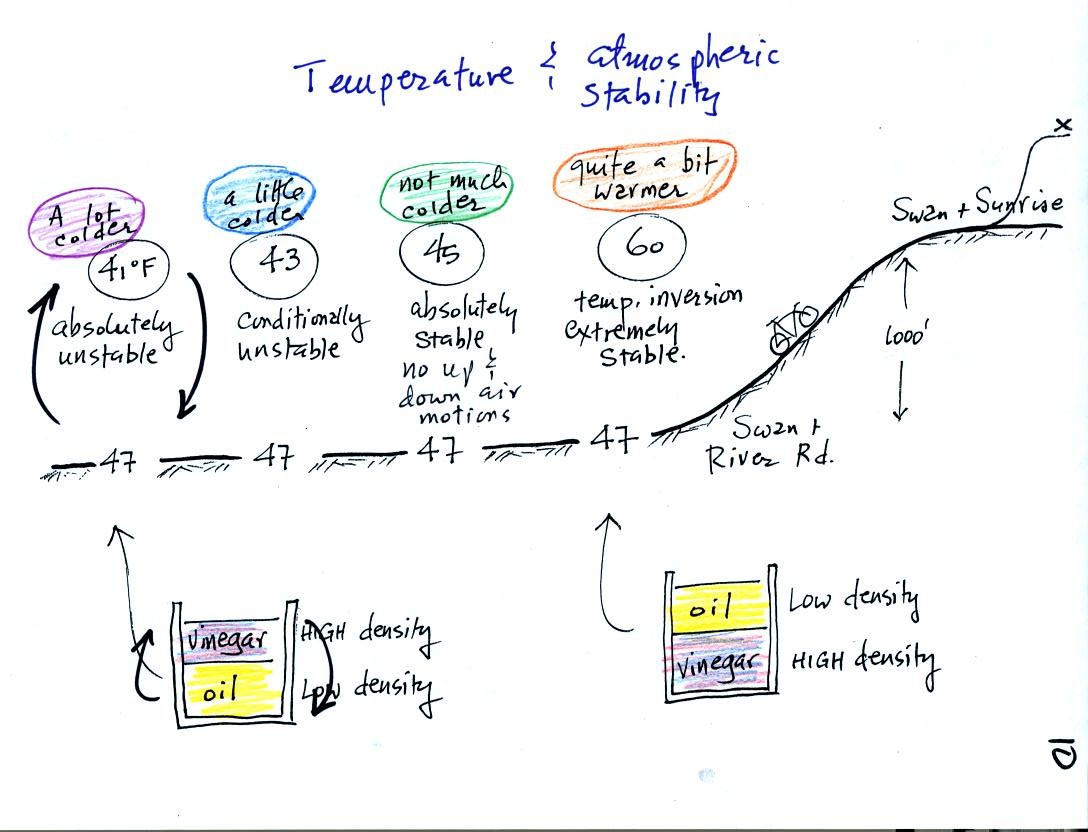 Temperature & atmospheric
stability
A lot
colder
41°F
absolutely
unstable
47
a little
colder
43
conditionally
unstable
47
not much
colder
45
absolutely
stable
no up &
down air
motions
47
quite a bit
warmer
60
temp. inversion
extremely
stable.
47
x
Swan + Sunrise
1000'
Swan +
River Rd.
vinegar
HIGH density
oil
Low density
oil
Low density
vinegar
HIGH density